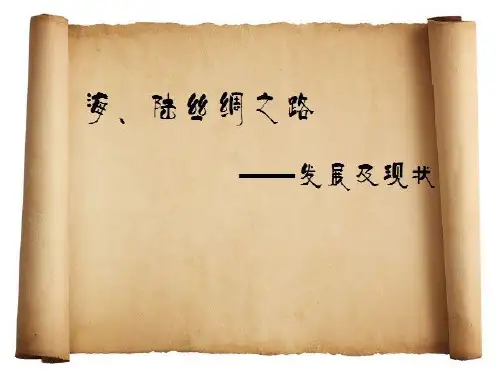 海、陆丝绸之路
——发展及现状